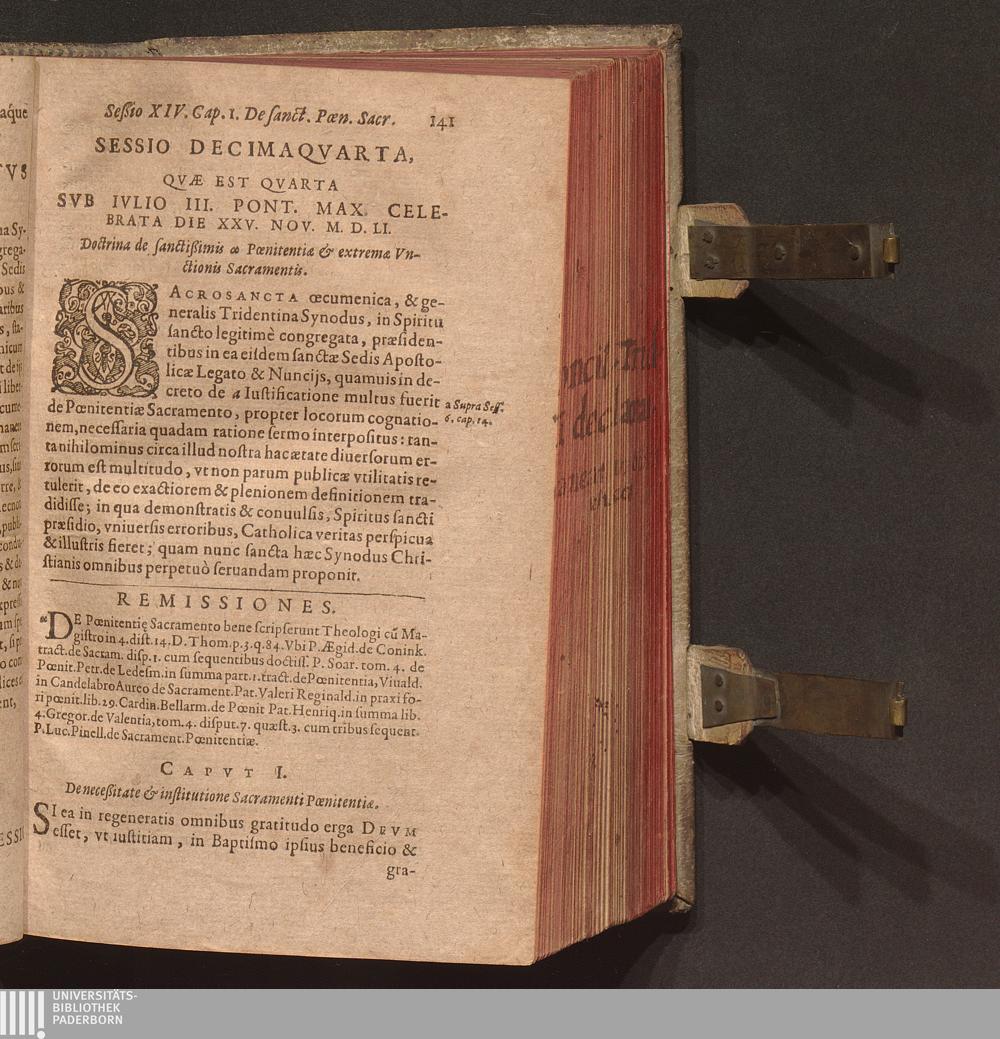 Seſſio XIV. Cap. 1. De ſanct. Pœn. Sacr. 141
SESSIO DECIMAQVARTA,
QVÆ EST QVARTA
SVB IVLIO III. PONT. MAX. CELE-
BRATA DIE XXV. NOV. M. D. LI.
Doctrina de ſanctiſſimis Pœnitentiæ & extremæ Vn-
ctionis Sacramentis.
SACROSANCTA œcumenica, & ge-
neralis Tridentina Synodus, in Spiritu
ſancto legitimè congregata, præſiden-
tibus in ea eiſdem ſanctæ Sedis Apoſto-
licæ Legato & Nuncijs, quamuis in de-
creto de a Iuſtificatione multus fuerit
a Supra Seſſ.
6. cap. 14.
de Pœnitentiæ Sacramento, propter locorum cognatio-
nem, neceſſaria quadam ratione ſermo interpoſitus: tan-
ta nihilominus circa illud noſtra hac ætate diuerſorum er-
rorum eſt multitudo, vt non parum publicæ vtilitatis re-
tulerit, de eo exactiorem & plenionem definitionem tra-
didiſſe; in qua demonſtratis & conuulſis, Spiritus ſancti
præſidio, vniuerſis erroribus, Catholica veritas perſpicua
& illuſtris fieret; quam nunc ſancta hæc Synodus Chri-
ſtianis omnibus perpetuò ſeruandam proponit.
REMISSIONES.
DE Pœnitentię Sacramento bene ſcripſerunt Theologi cũ Ma-
giſtro in 4. diſt. 14. D. Thom. p. 3. q. 84. Vbi P. Ægid. de Conink.
tract. de Sacram. diſp. 1. cum ſequentibus doctiſſ. P. Soar. tom. 4. de
Pœnit. Petr. de Ledeſm. in ſumma part. 1. tract. de Pœnitentia, Viuald.
in Candelabro Aureo de Sacrament. Pat. Valeri Reginald. in praxi fo-
ri pœnit. lib. 29. Cardin. Bellarm. de Pœnit Pat. Henriq. in ſumma lib.
4. Gregor. de Valentia, tom. 4. diſput. 7. quæſt. 3. cum tribus ſequent.
P. Luc. Pinell. de Sacrament. Pœnitentiæ.
CAPVT I.
De neceſſitate & inſtitutione Sacramenti Pœnitentiæ.
SI ea in regeneratis omnibus gratitudo erga DEVM
eſſet, vt iuſtitiam, in Baptiſmo ipſius beneficio &
gra-
UNIVERSITÄTS-
BIBLIOTHEK
PADERBORN